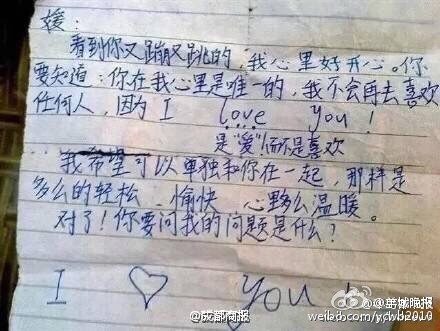 媛：
看到你又蹦又跳的，我心里好开心。你
要知道：你在我心里是唯一的，我不会再去喜欢
任何人，因为I love you！
是"爱"而不是喜欢
我希望可以单独和你在一起，那样是
多么的轻松、愉快 心多么温暖。
对了！你要问我的问题是什么？
I ♡ you！
@成都商报
@羊城晚报
weibo.com/ycwb2010